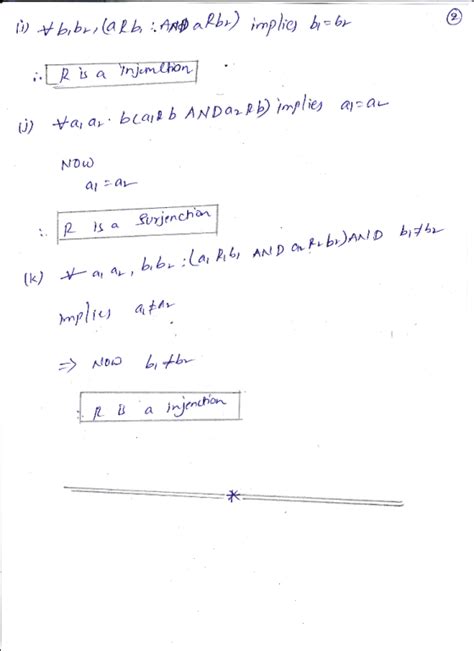 ②
(i) ∀ b₁b₂, (aRb₁ : AND aRb₂) implies b₁=b₂
∴ R is a injunction
(j) ∀a₁a₂. b(a₁Rb AND a₂Rb) implies a₁=a₂
NOW
a₁=a₂
∴ R is a Surjenction
(k) ∀ a₁a₂, b₁b₂ : (a₁R₁b₁ AND a₂R₂b₂) AND b₁≠b₂
implies a₁≠a₂
⇒ NOW b₁≠b₂
∴ R is a injenction